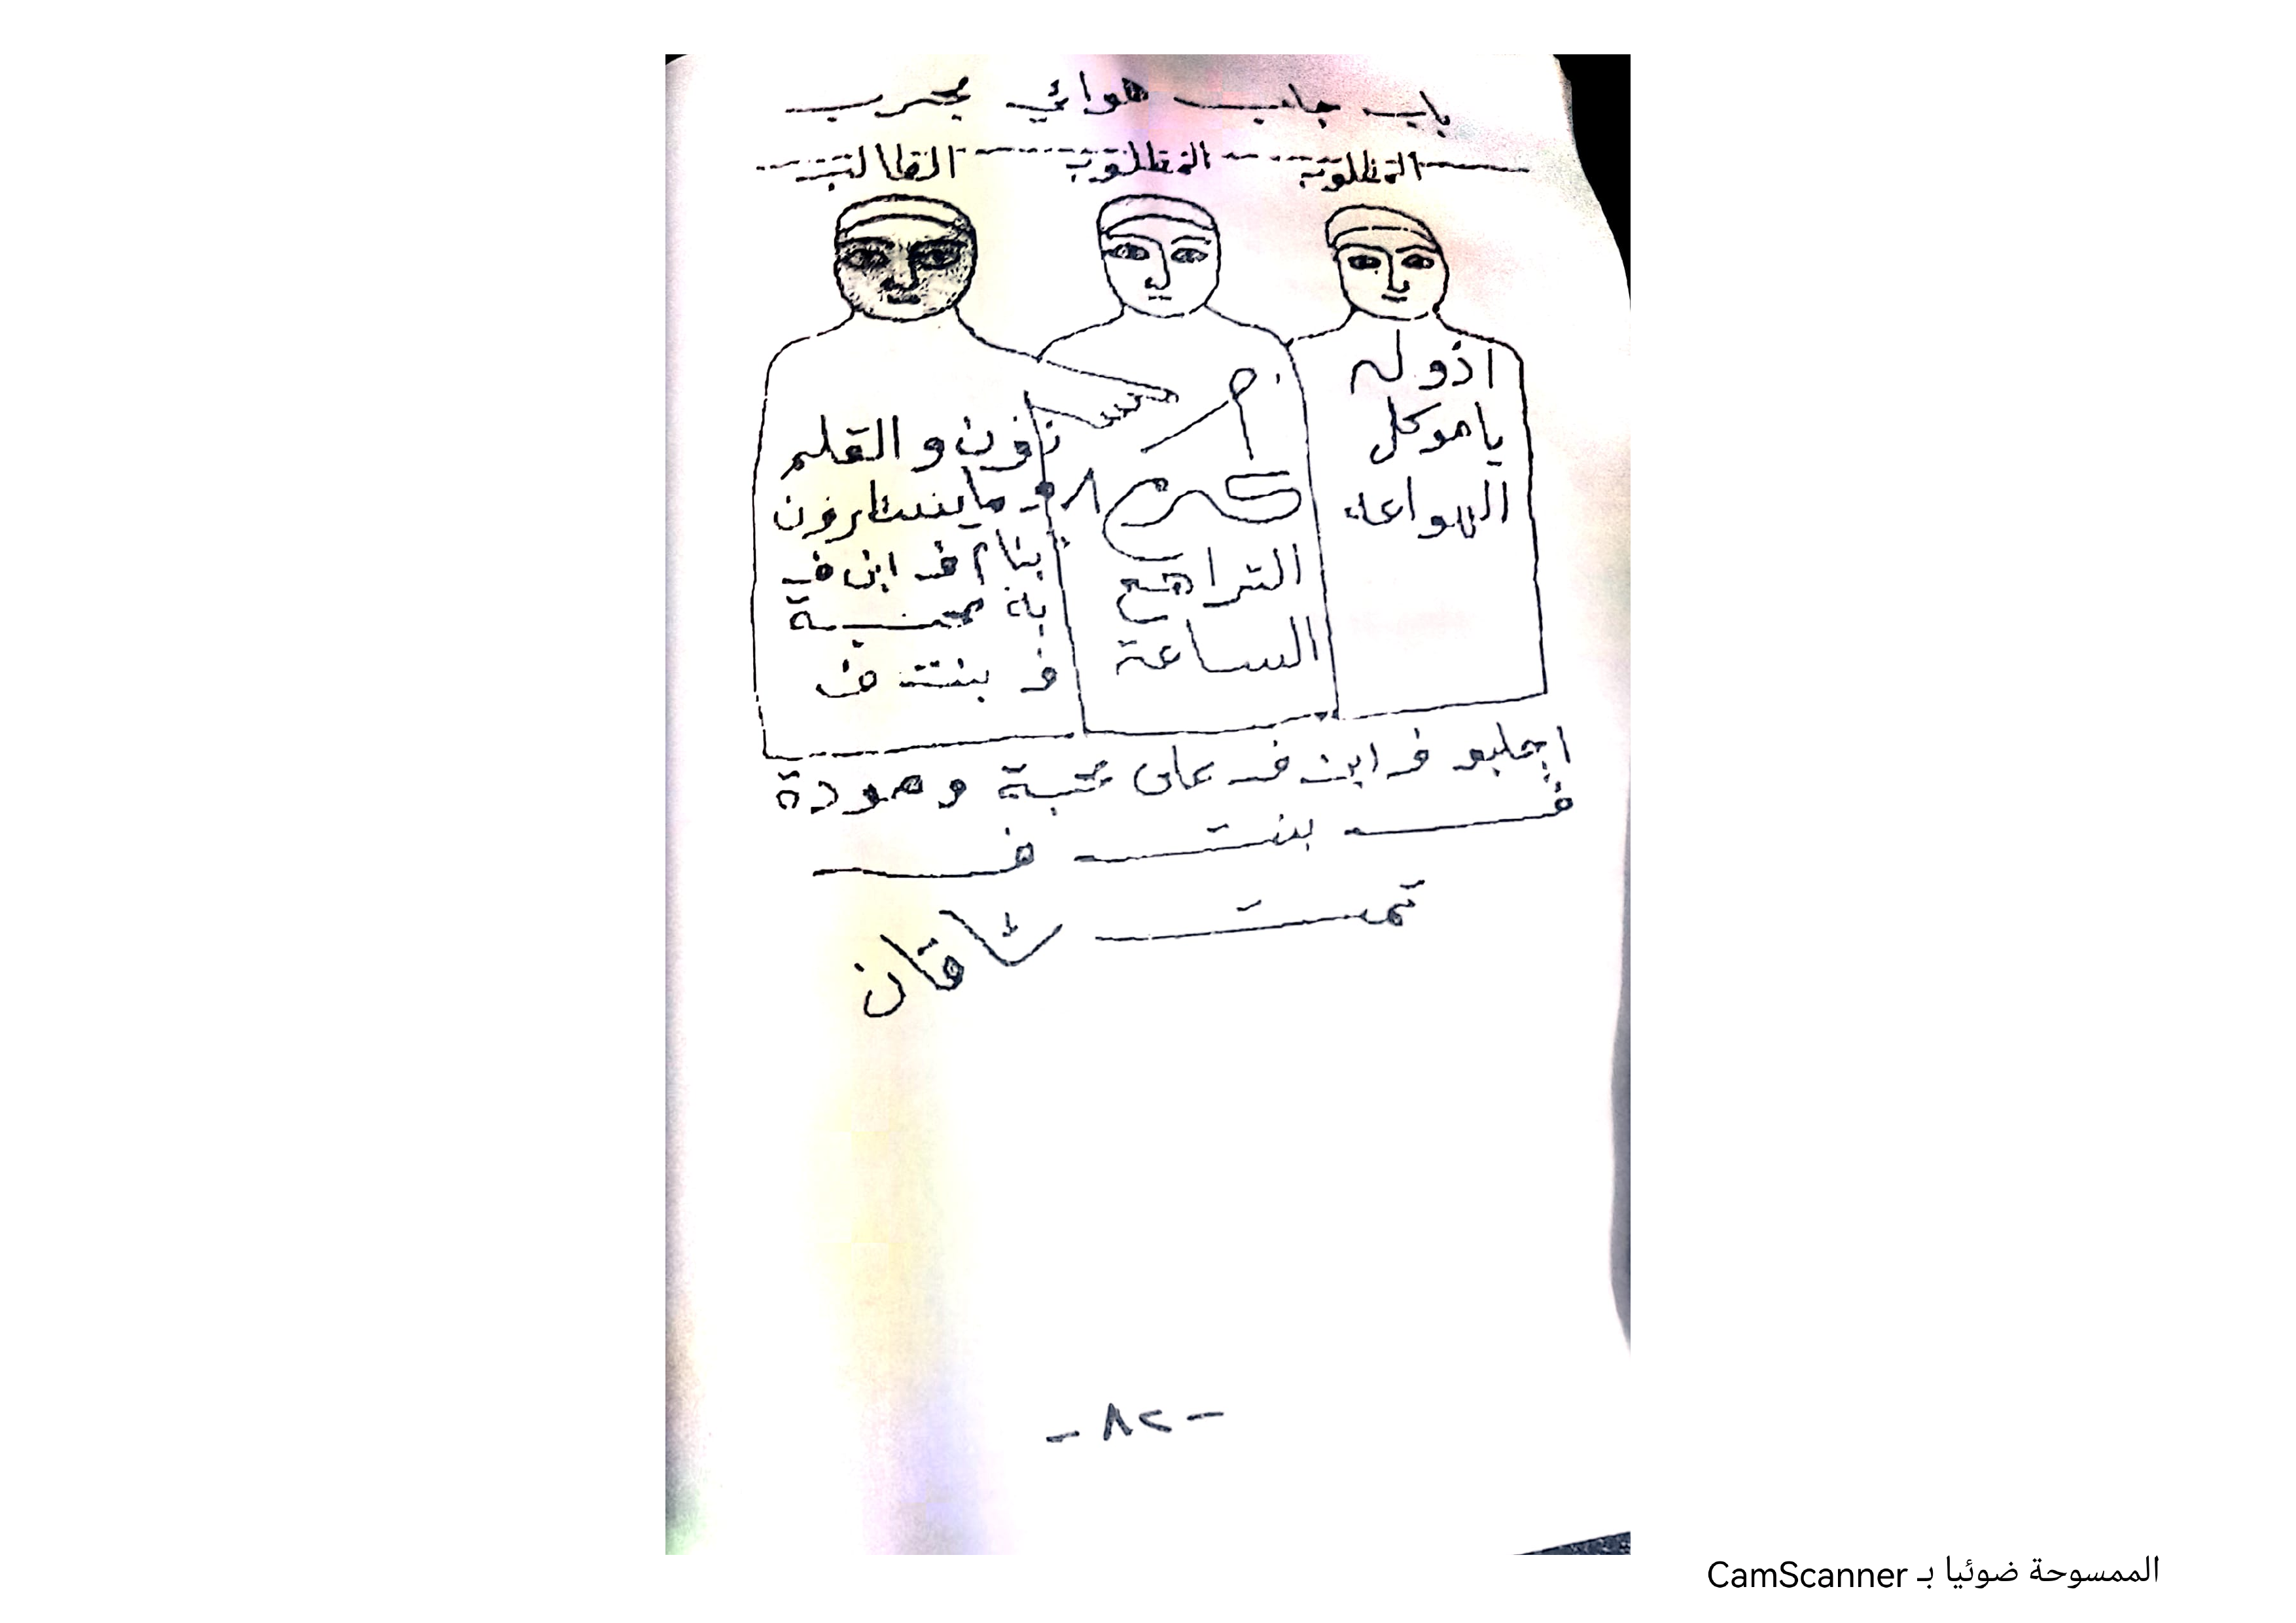 باب جلب هوائي مجرب
المطلوب المطلوب الطالب
اذوله
ياموكل
الهواعه
٨
التراهج
الساعة
نون والقلم
و مايسطرون
ف ابن ف
محبة
ف بنت ف
اجلبو ف ابن ف على محبة ومودة
ف بنت ف
تمت
- ٨٢ -
الممسوحة ضوئيا بـ CamScanner